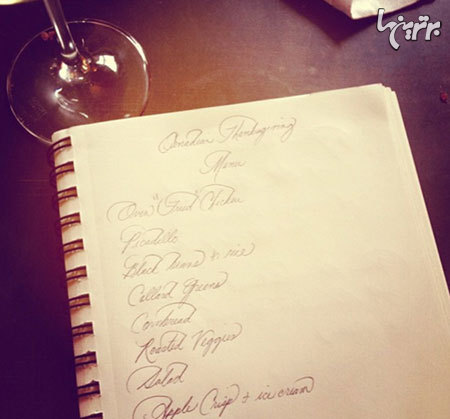 برترینها
Canadian Thanksgiving
Menu
Oven "Fried" Chicken
Picadillo
Black Beans + rice
Collard Greens
Cornbread
Roasted Veggies
Salad
Apple Crisp + ice cream